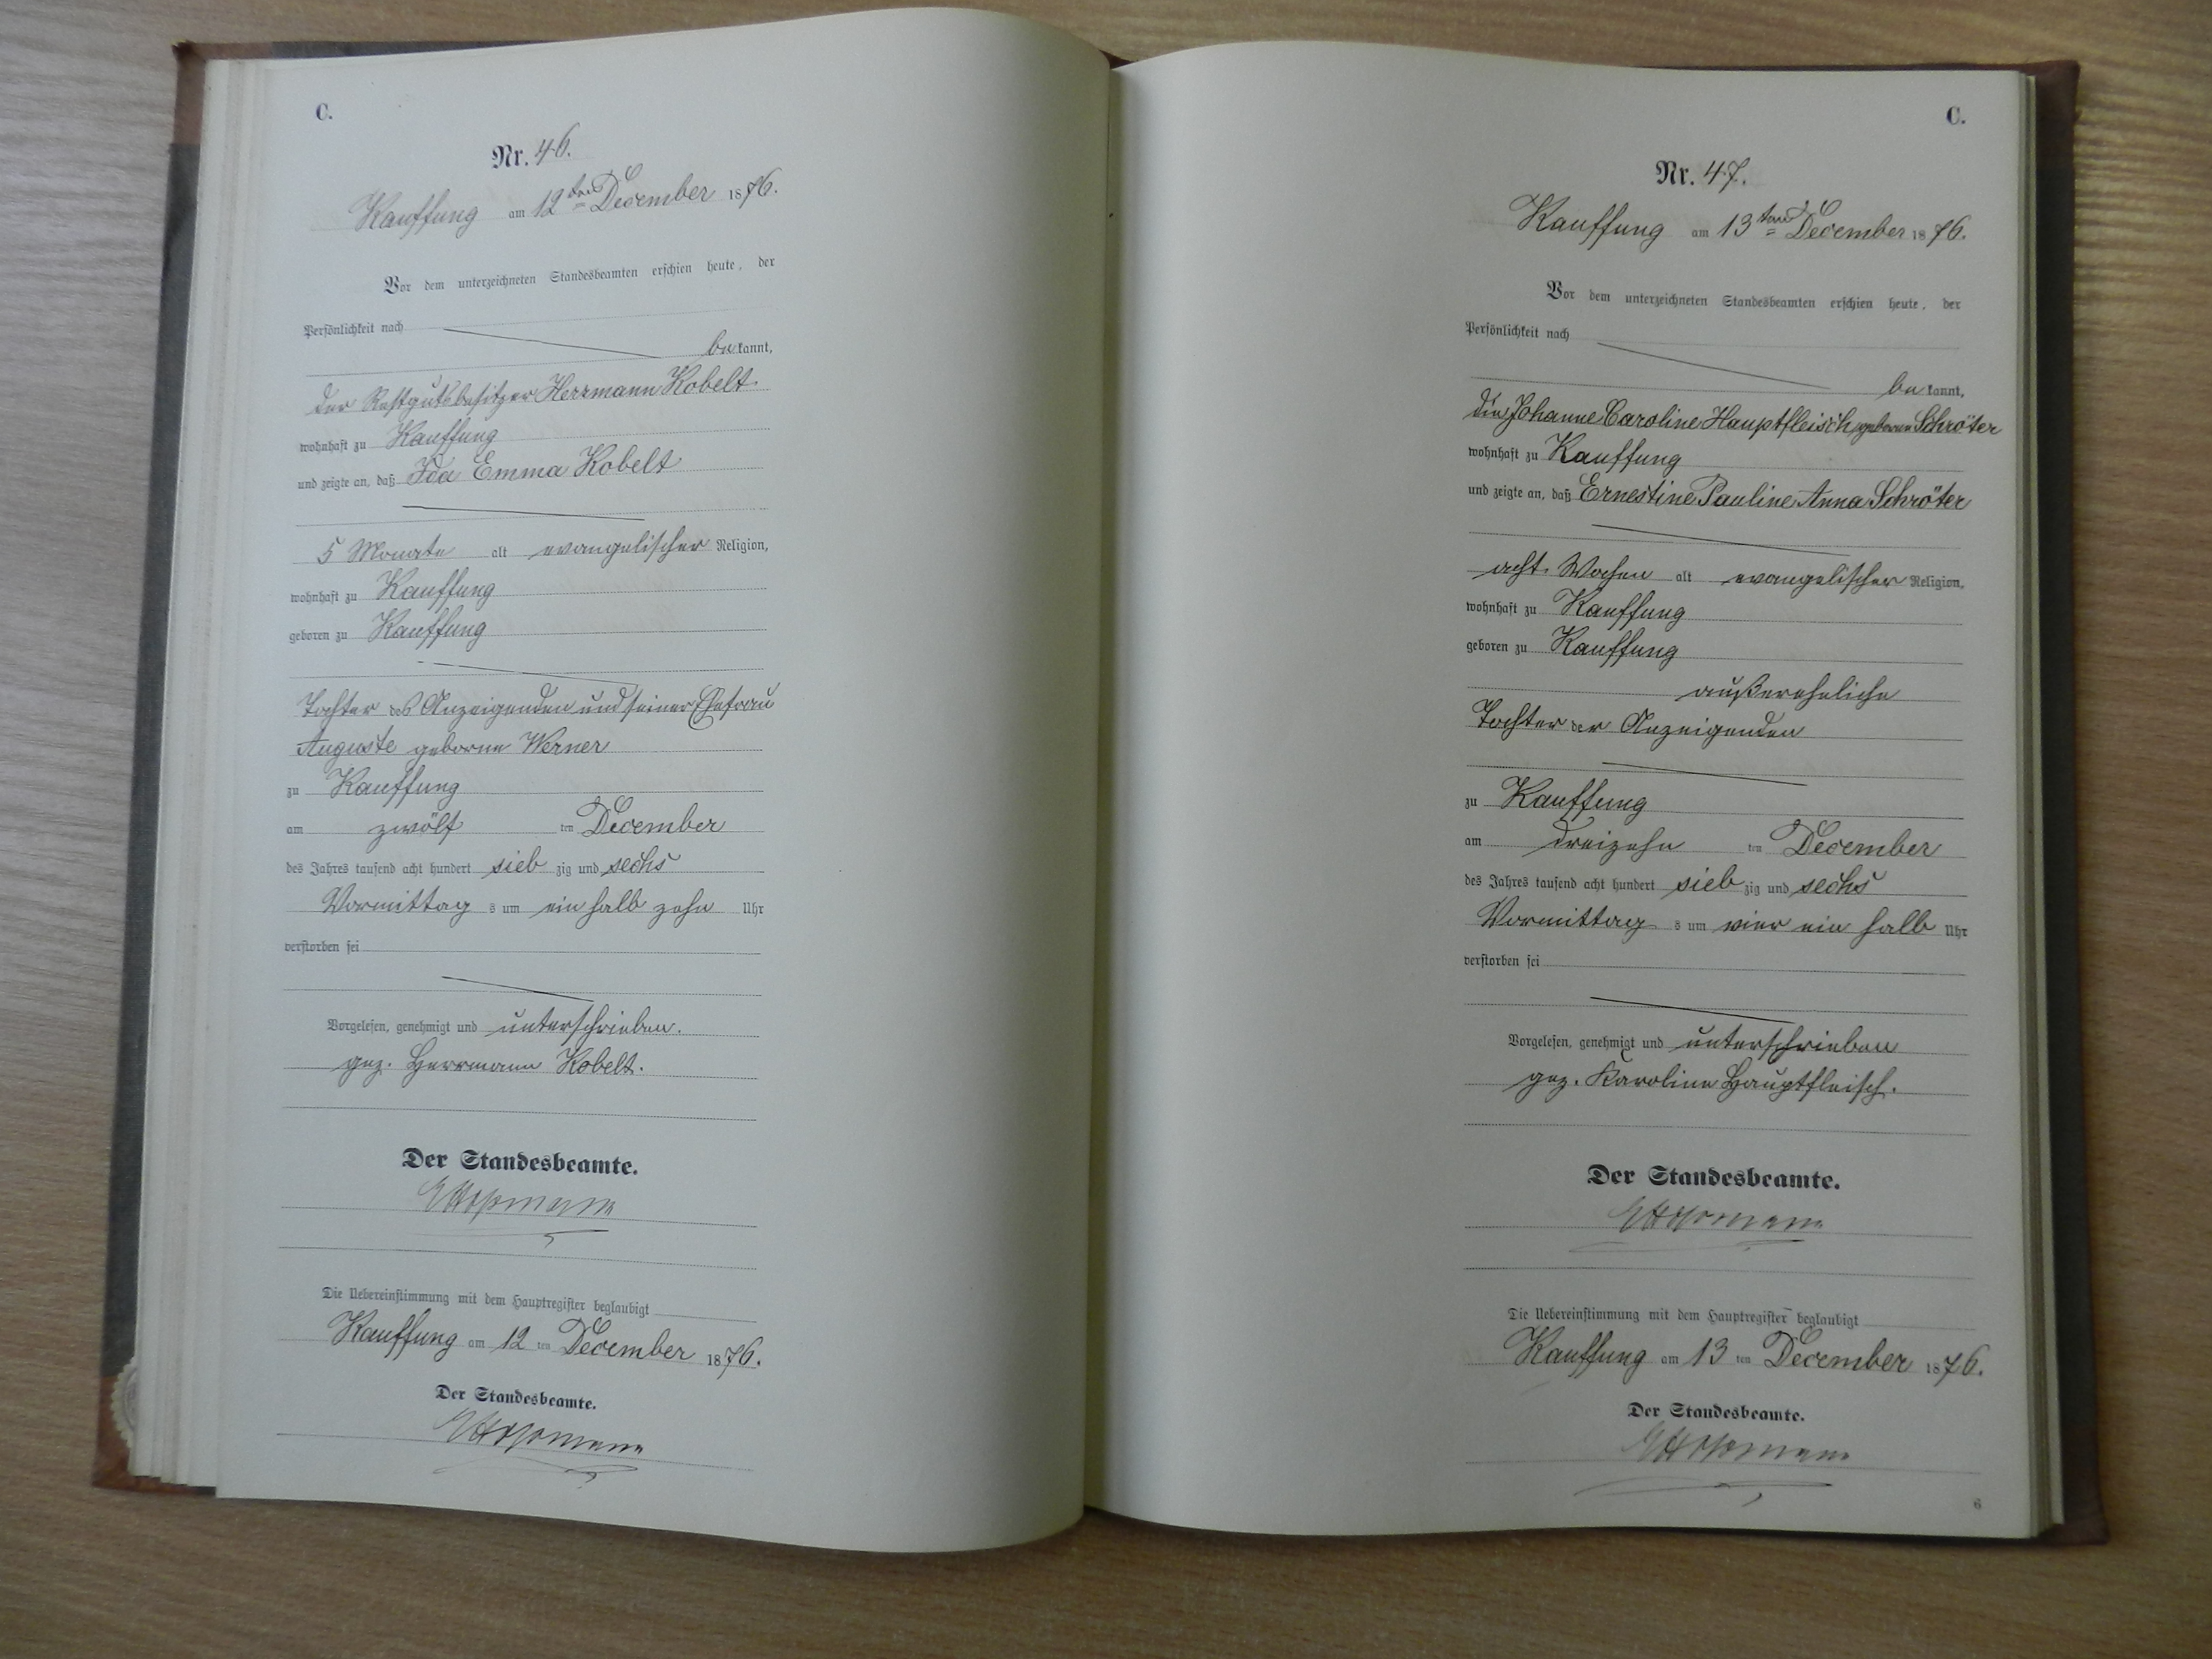 C.
Nr. 46.
Kauffung am 12ten December 1876.
Vor dem unterzeichneten Standesbeamten erschien heute, der
Persönlichkeit nach
be kannt,
der Restgutsbesitzer Herrmann Kobelt
wohnhaft zu Kauffung
und zeigte an, daß Ida Emma Kobelt
5 Monate alt evangelischer Religion,
wohnhaft zu Kauffung
geboren zu Kauffung
Tochter des Anzeigenden und seiner Ehefrau
Auguste geborne Werner
zu Kauffung
am zwölf ten December
des Jahres tausend acht hundert sieb zig und sechs
Vormittag s um ein halb zehn Uhr
verstorben sei
Vorgelesen, genehmigt und unterschrieben.
gez. Herrmann Kobelt.
Der Standesbeamte.
Die Uebereinstimmung mit dem Hauptregister beglaubigt
Kauffung am 12 ten December 1876.
Der Standesbeamte.
C.
Nr. 47.
Kauffung am 13ten December 1876.
Vor dem unterzeichneten Standesbeamten erschien heute, der
Persönlichkeit nach
be kannt,
die Johanne Caroline Hauptfleisch geborene Schröter
wohnhaft zu Kauffung
und zeigte an, daß Ernestine Pauline Anna Schröter
acht Wochen alt evangelischer Religion,
wohnhaft zu Kauffung
geboren zu Kauffung
außereheliche
Tochter der Anzeigenden
zu Kauffung
am dreizehn ten December
des Jahres tausend acht hundert sieb zig und sechs
Vormittag s um vier ein halb Uhr
verstorben sei
Vorgelesen, genehmigt und unterschrieben
gez. Karoline Hauptfleisch.
Der Standesbeamte.
Die Uebereinstimmung mit dem Hauptregister beglaubigt
Kauffung am 13 ten December 1876.
Der Standesbeamte.
6